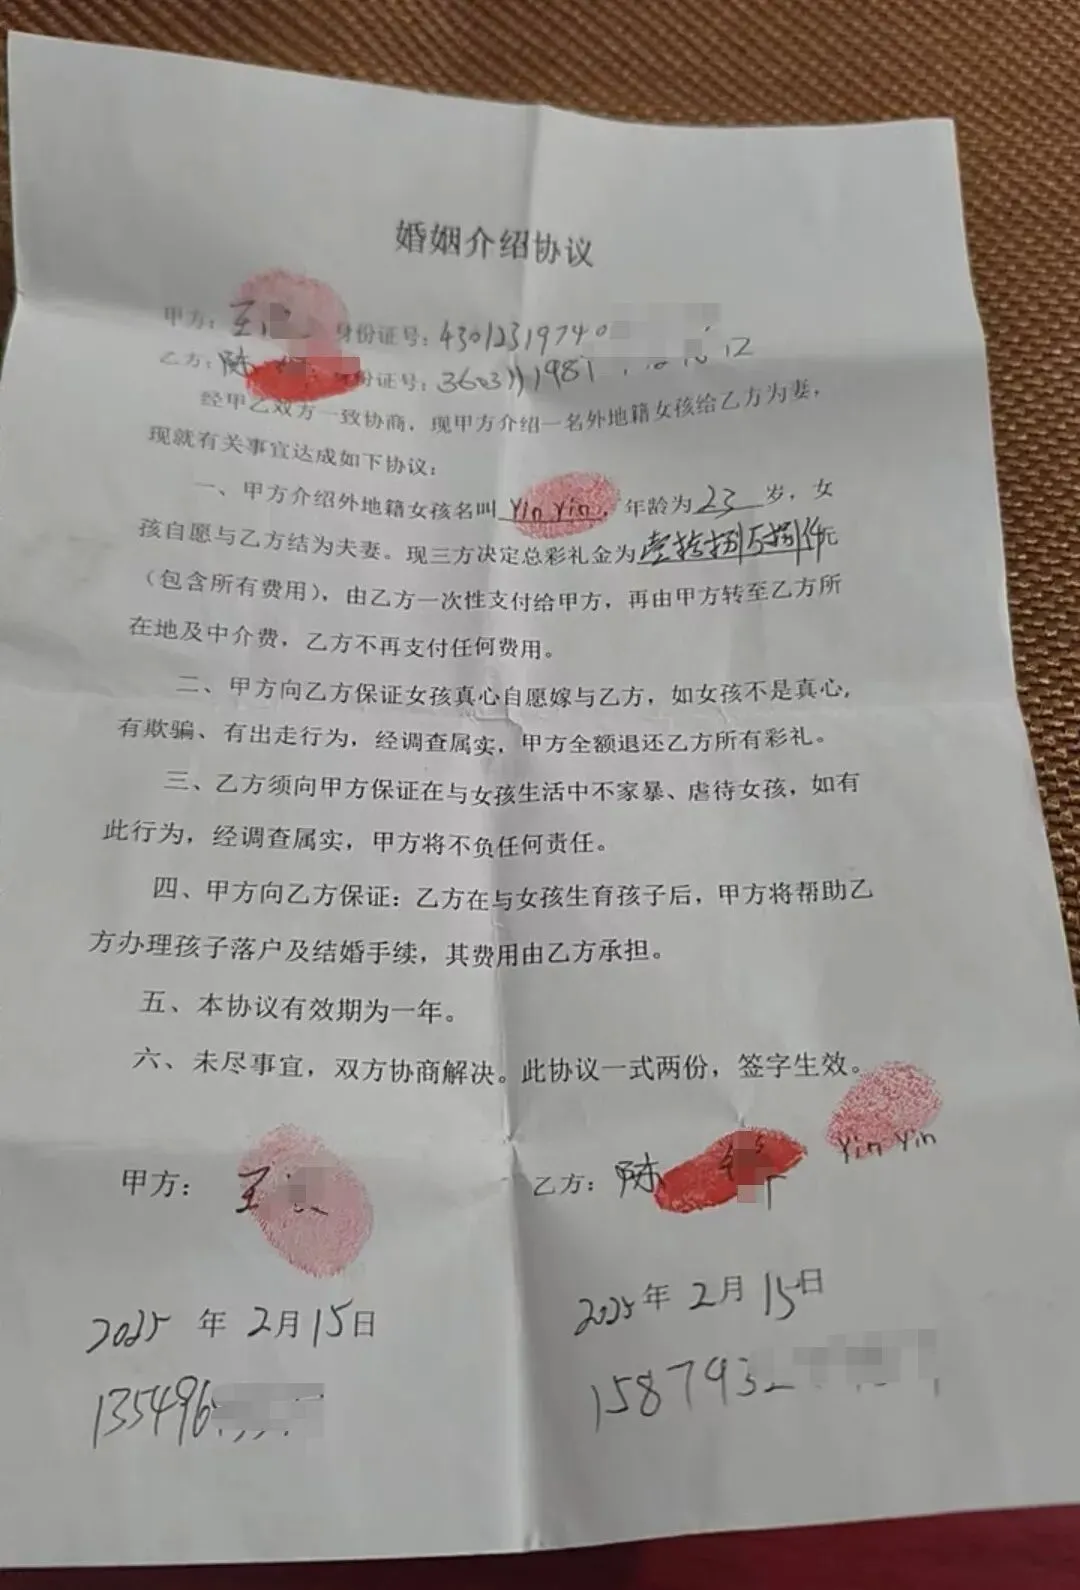 婚姻介绍协议
甲方：王 身份证号：43012319740
乙方：陈 份证号：3603 1987
经甲乙双方一致协商，现甲方介绍一名外地籍女孩给乙方为妻，
现就有关事宜达成如下协议：
一、甲方介绍外地籍女孩名叫Yin Yin，年龄为23岁，女
孩自愿与乙方结为夫妻。现三方决定总彩礼金为壹拾捌万捌仟元
（包含所有费用），由乙方一次性支付给甲方，再由甲方转至乙方所
在地及中介费，乙方不再支付任何费用。
二、甲方向乙方保证女孩真心自愿嫁与乙方，如女孩不是真心，
有欺骗、有出走行为，经调查属实，甲方全额退还乙方所有彩礼。
三、乙方须向甲方保证在与女孩生活中不家暴、虐待女孩，如有
此行为，经调查属实，甲方将不负任何责任。
四、甲方向乙方保证：乙方在与女孩生育孩子后，甲方将帮助乙
方办理孩子落户及结婚手续，其费用由乙方承担。
五、本协议有效期为一年。
六、未尽事宜，双方协商解决。此协议一式两份，签字生效。
甲方：王 乙方：陈 Yin Yin
2025年2月15日 2025年2月15日
135496 1587932